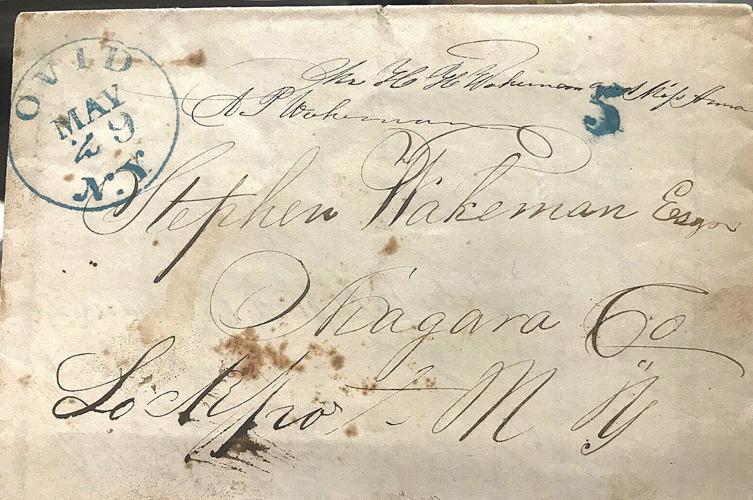 OVID
MAY
29
N.Y.
Mr H H Wakeman and Miss Anna
5
A P Wakeman
Stephen Wakeman Esqr
Niagara Co
Lockport N Y